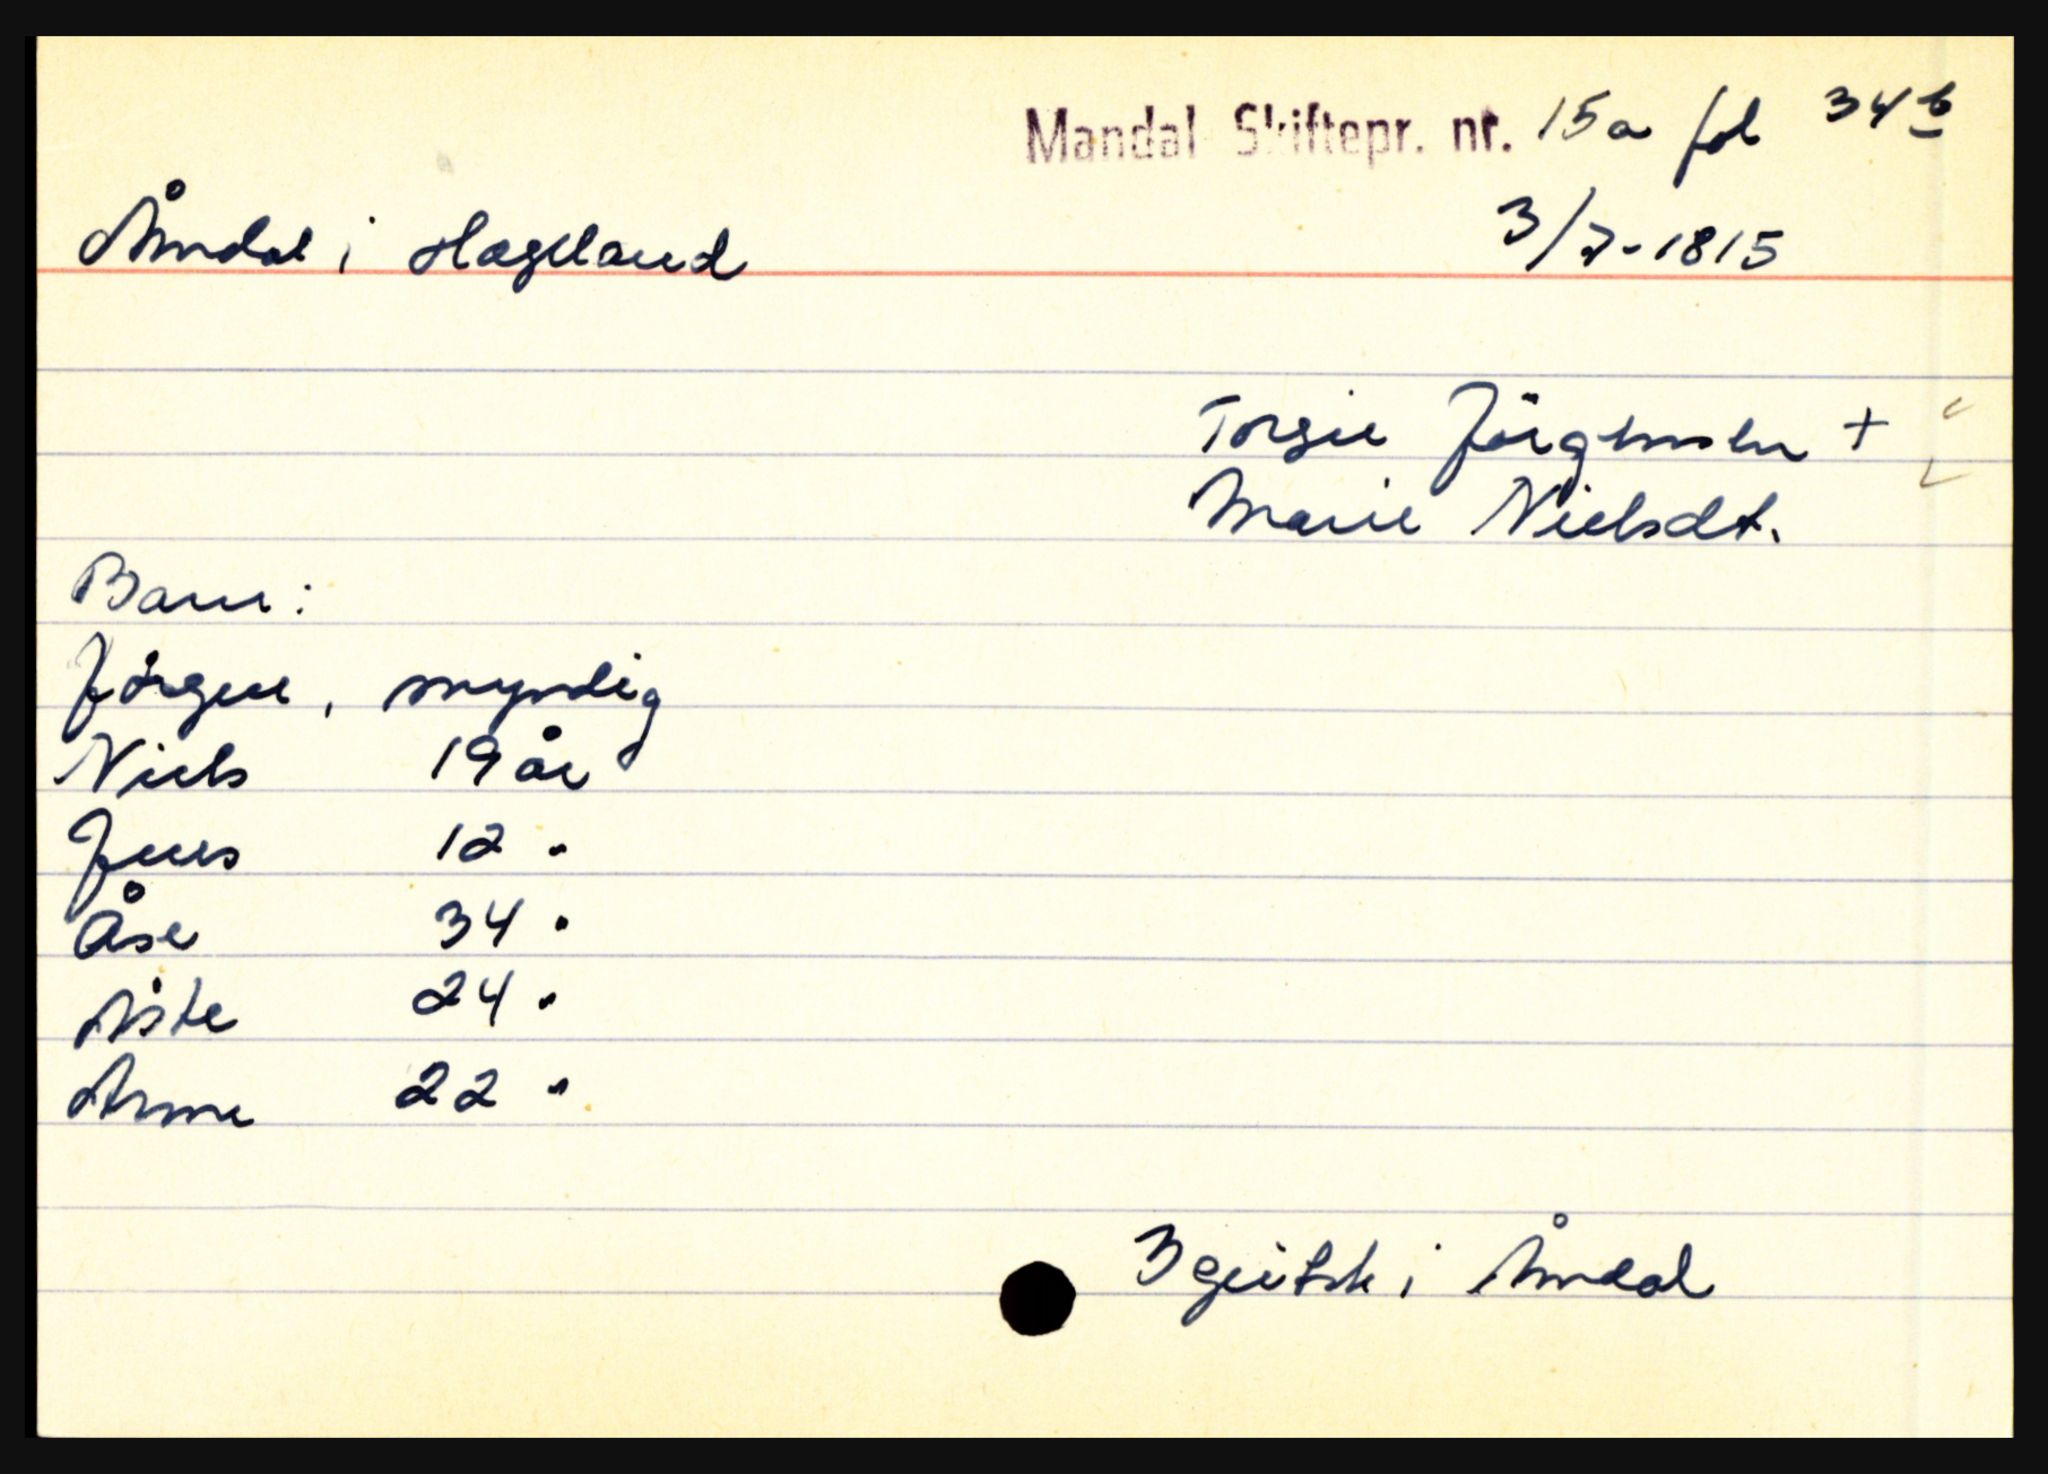 Mandal Skiftepr. nr. 15a fol 34b
Åmdal i Hægeland 3/7-1815
Torgie Jörgensen +
Marie Nielsdt.
Barn:
Jörgen, myndig
Niels 19 år
Jens 12 "
Åse 34 "
Aste 24 "
Anne 22 "
3 geitsk i Åmdal